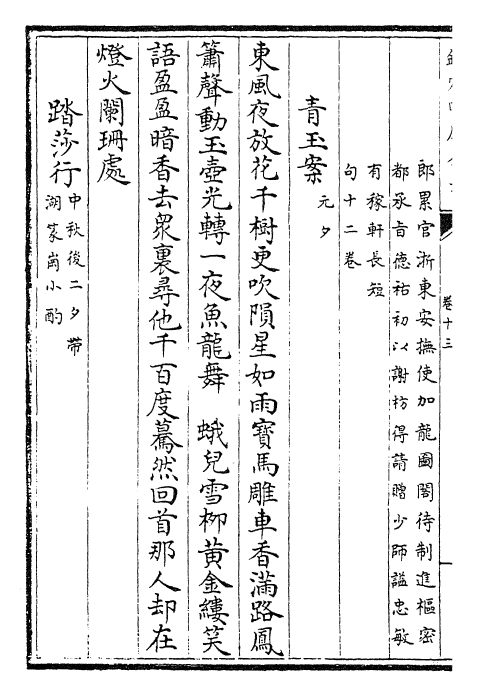 卷十三
郎累官浙東安撫使加龍圖閣待制進樞密
都承旨德祐初以謝枋得請贈少師謚忠敏
有稼軒長短
句十二卷
青玉案 元夕
東風夜放花千樹更吹隕星如雨寶馬雕車香滿路鳳
簫聲動玉壺光轉一夜魚龍舞　蛾兒雪柳黄金縷笑
語盈盈暗香去衆裏尋他千百度驀然回首那人却在
燈火闌珊處
踏莎行 中秋後二夕帶
湖篆岡小酌